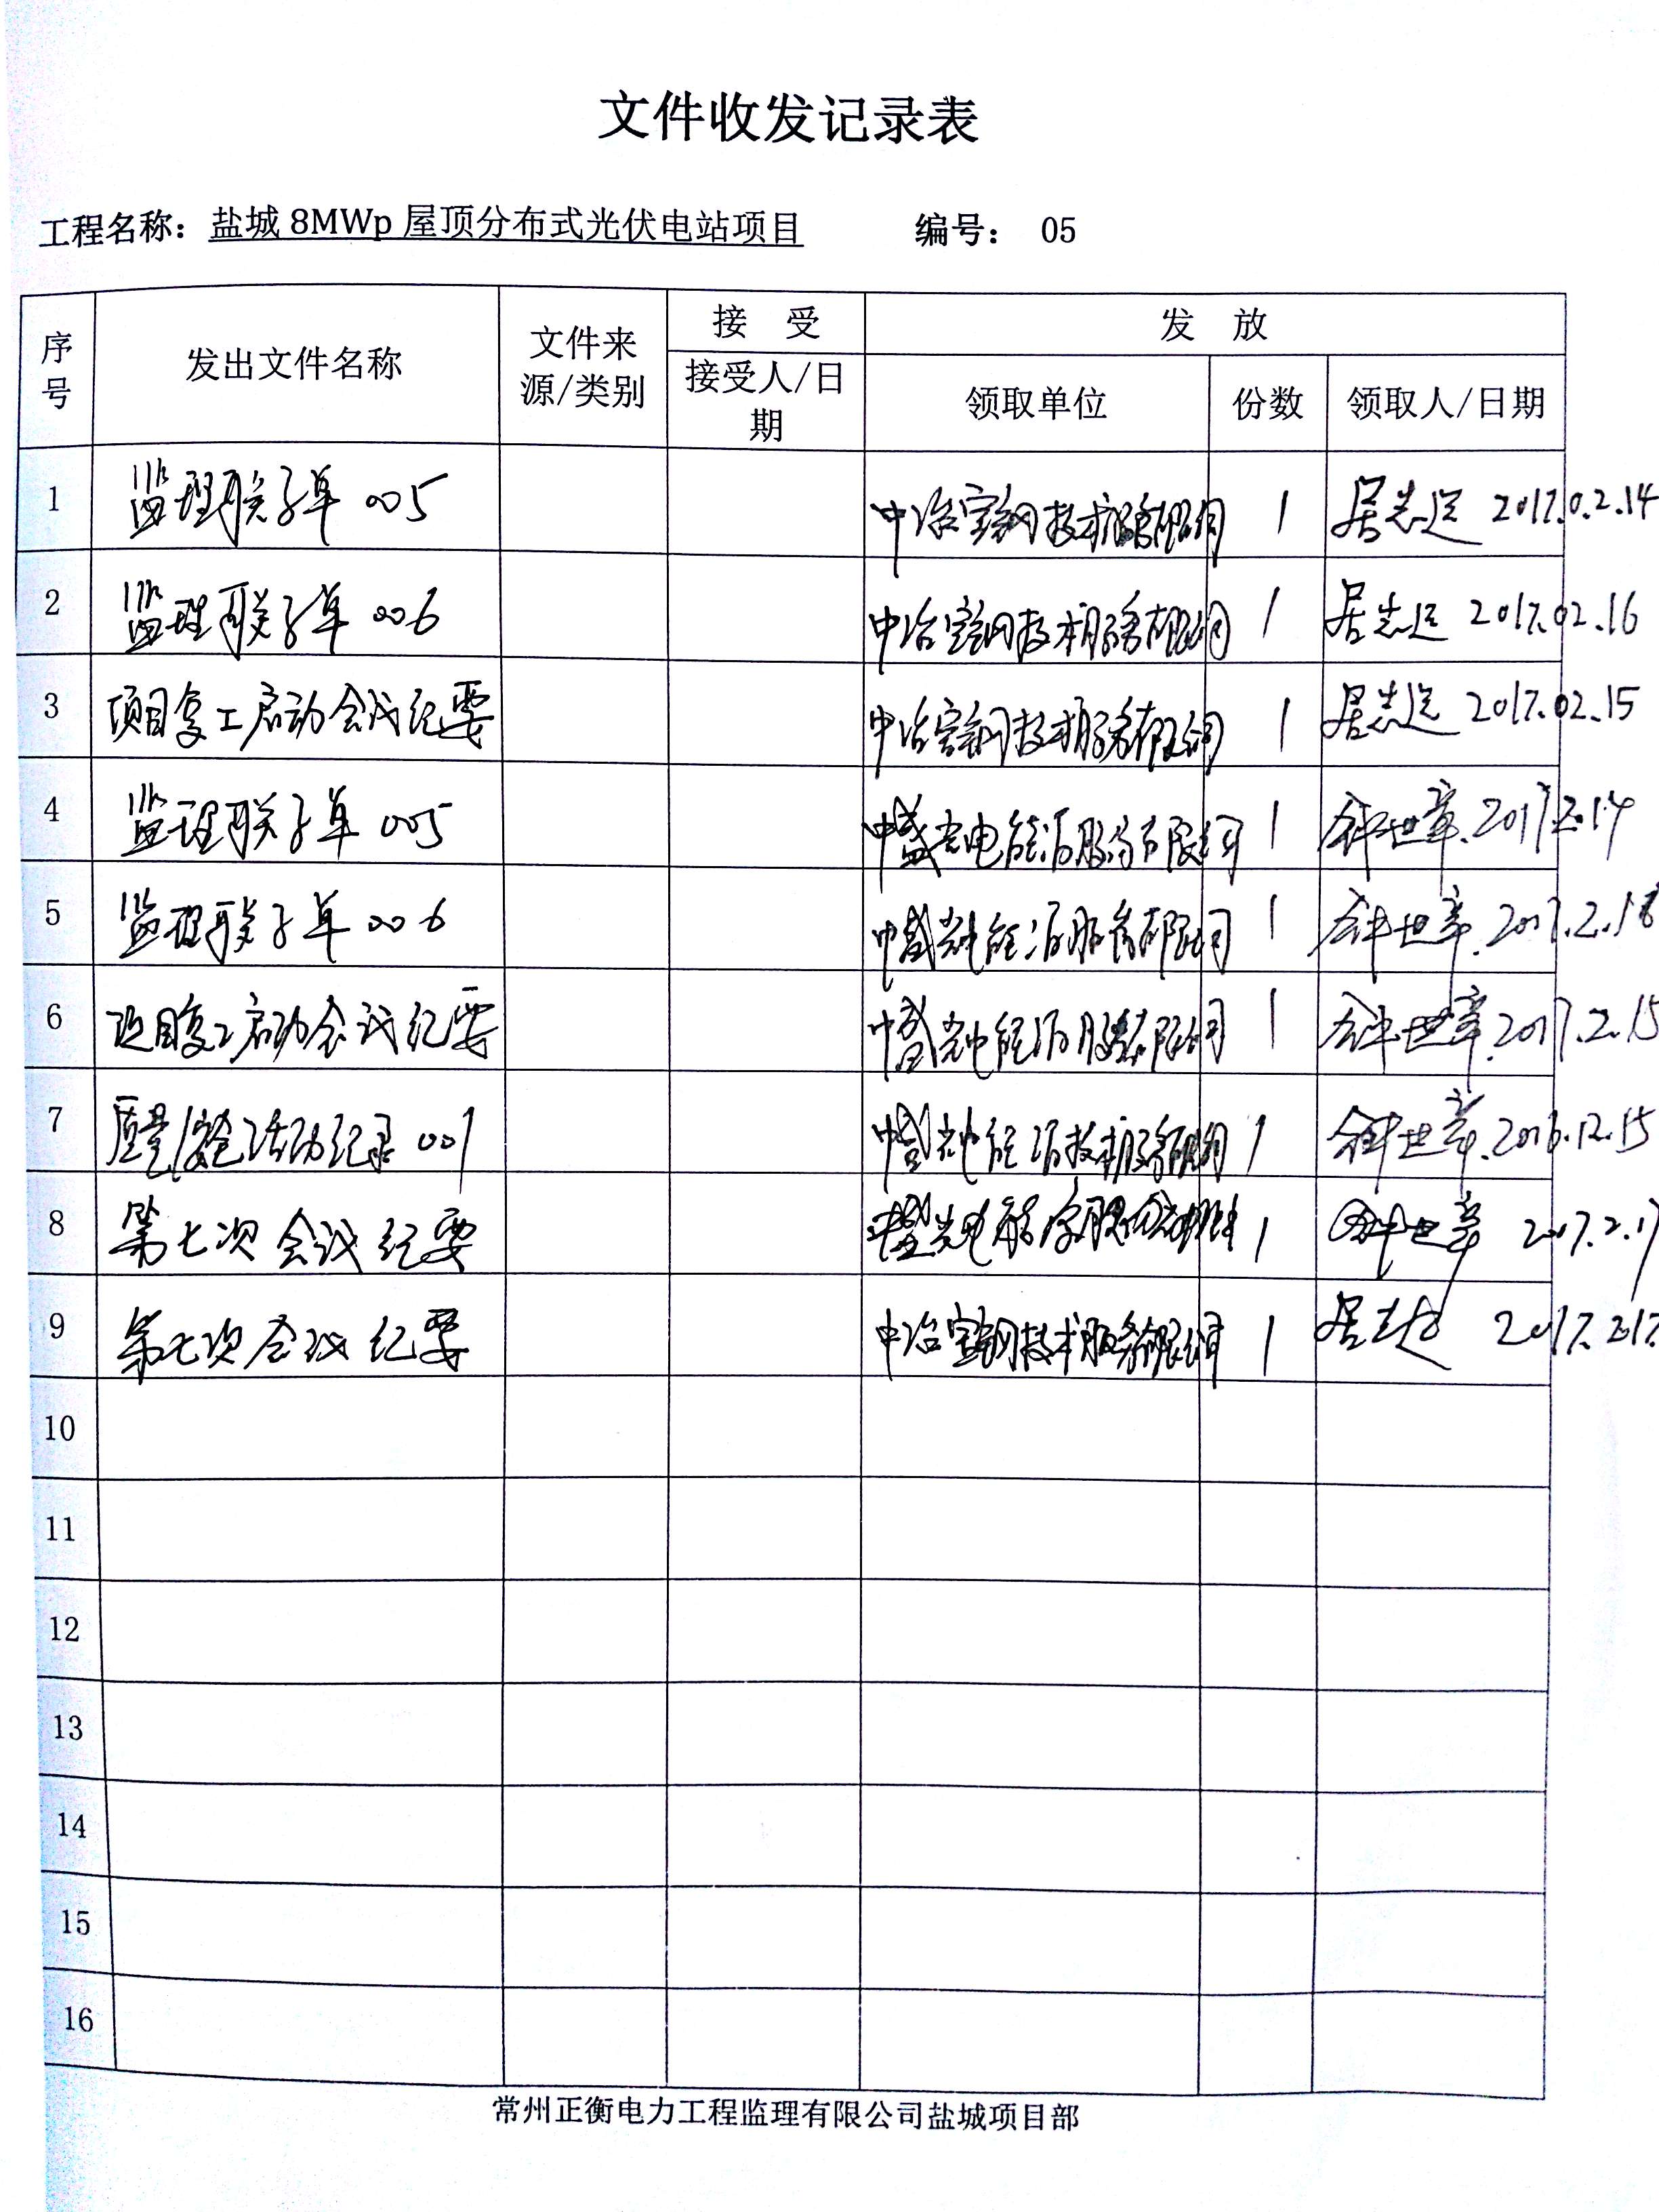 文件收发记录表
工程名称：盐城 8MWp 屋顶分布式光伏电站项目 编号： 05
序号 发出文件名称 文件来源/类别 接 受 发 放
接受人/日期 领取单位 份数 领取人/日期
1 监理联系单 005 中冶宝钢技术服务有限公司 1 居志 2017.0.2.14
2 监理联系单 006 中冶宝钢技术服务有限公司 1 居志 2017.02.16
3 项目复工启动会议纪要 中冶宝钢技术服务有限公司 1 居志 2017.02.15
4 监理联系单 005 中盛光电能源股份有限公司 1 世章.2017.2.14
5 监理联系单 006 中盛光电能源股份有限公司 1 世章.2017.2.18
6 项目复工启动会议纪要 中盛光电能源股份有限公司 1 世章.2017.2.15
7 质量/安全活动记录 001 中盛光电能源技术服务有限公司 1 世章.2016.12.15
8 第七次会议纪要 中盛光电能源股份有限 1 世章 2017.2.17
9 第七次会议纪要 中冶宝钢技术服务有限公司 1 居志 2017.2.17.
10
11
12
13
14
15
16
常州正衡电力工程监理有限公司盐城项目部